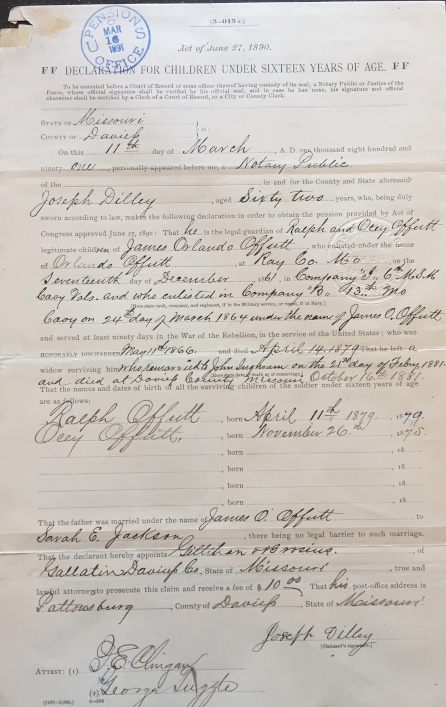 U.S. PENSION OFFICE
MAR 16 1891
[3—015 c.]
Act of June 27, 1890.
FF DECLARATION FOR CHILDREN UNDER SIXTEEN YEARS OF AGE. FF
To be executed before a Court of Record or some officer thereof having custody of its seal, a Notary Public or Justice of the
Peace, whose official signature shall be verified by his official seal, and in case he has none, his signature and official
character shall be certified by a Clerk of a Court of Record, or a City or County Clerk.
STATE OF Missouri
COUNTY OF Daviess } ss:
On this 11th day of March, A. D. one thousand eight hundred and
ninety-one, personally appeared before me, a Notary Public
of the in and for the County and State aforesaid
Joseph Dilley, aged Sixty two years, who, being duly
sworn according to law, makes the following declaration in order to obtain the pension provided by Act of
Congress approved June 27, 1890: That he is the legal guardian of Ralph and Ocey Offutt
legitimate children of James Orlando Offutt, who enlisted under the name
of Orlando Offutt at Ray Co. Mo on the
Seventeenth day of December 1861, in Company E, 6th M.S.M
Cavy Vols. and who enlisted in Company "B" 13th Mo
Cavy on 24th day of March 1864 under the name of James O. Offutt
and served at least ninety days in the War of the Rebellion, in the service of the United States; who was
HONORABLY DISCHARGED May 11th 1866, and died April 14. 1879 That he left a
widow surviving him who remarried to John Ingham on the 21st day of Febry 1881
and died at Daviess County Missouri October 16th 1885
That the names and dates of birth of all the surviving children of the soldier under sixteen years of age
are as follows:
Ralph Offutt, born April 11th 1879. 1879.
Ocey Offutt, born November 26th 1875.
, born , 18
, born , 18
, born , 18
, born , 18
That the father was married under the name of James O. Offutt to
Sarah E. Jackson, there being no legal barrier to such marriage.
That the declarant hereby appoints Gillihan & Brosius, of
Gallatin Daviess Co, State of Missouri, true and
lawful attorneys to prosecute this claim and receive a fee of $ 10.00 That his post-office address is
Pattonsburg, County of Daviess, State of Missouri
Joseph Dilley
[Claimant's signature.]
ATTEST: (1)
(2) George Tuggle